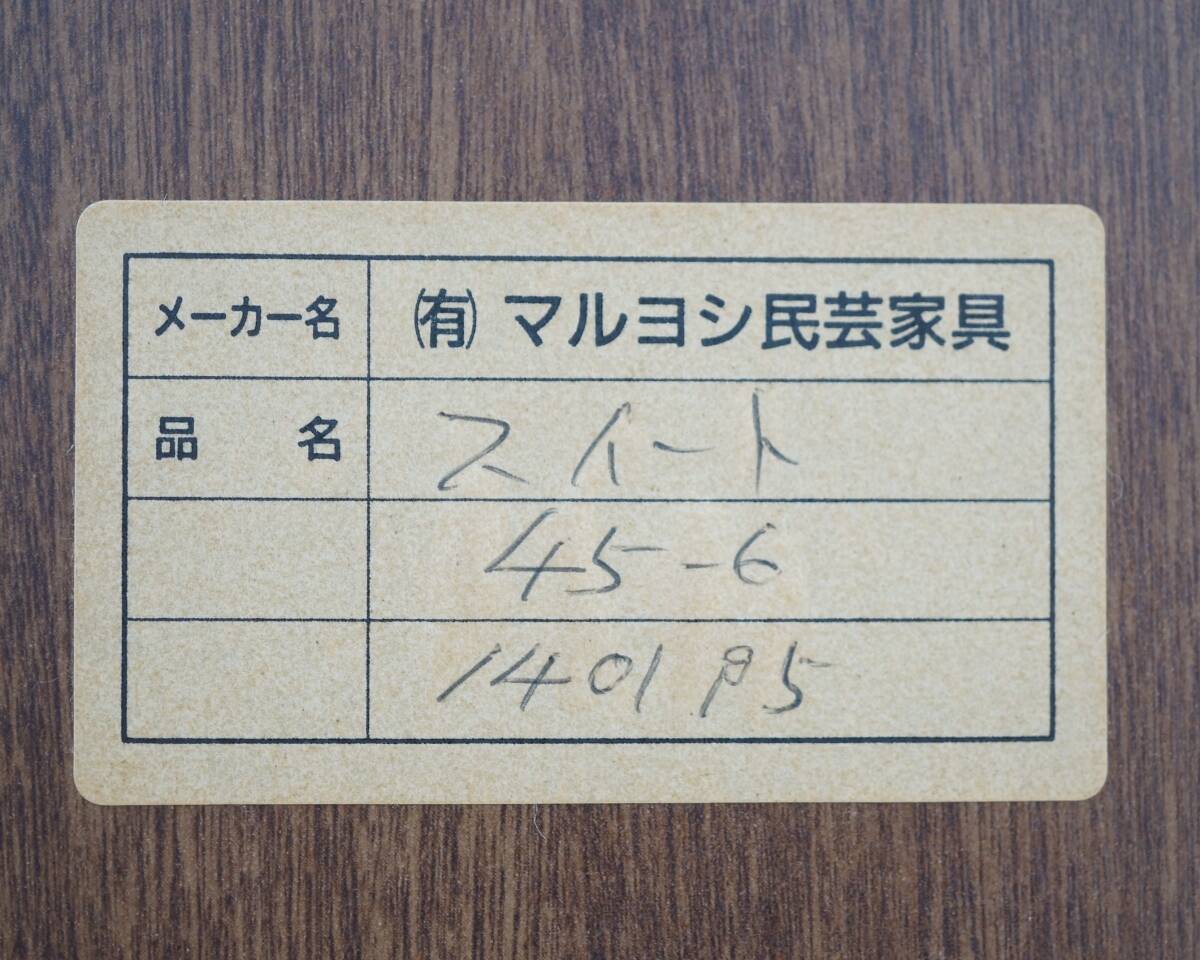 メーカー名 ㈲ マルヨシ民芸家具
品名 スイート
45-6
1401 P5